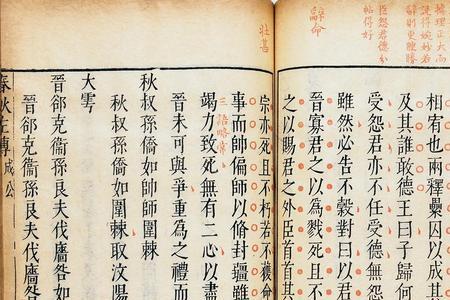 據理正大而
說得婉妙若
辭則更臃腫
臣怨君德分
帖得好
辭命
壯甚
相宥也兩釋纍囚以成
及其誰敢德王曰子歸何
受怨君亦不任受德無怨
雖然必告不穀對曰以君
晉寡君之以為戮死且不
之以賜君之外臣首首其
宗亦死且不朽若不獲命
事而帥偏師以脩封疆雖
竭力致死無有二心以盡
晉未可與爭重為之禮而
秋叔孫僑如帥師圍棘
秋叔孫僑如圍棘取汶陽
大雩
晉郤克衛孫良夫伐廧咎如
晉郤克衛孫良夫伐廧咎如
春秋左傳 成公